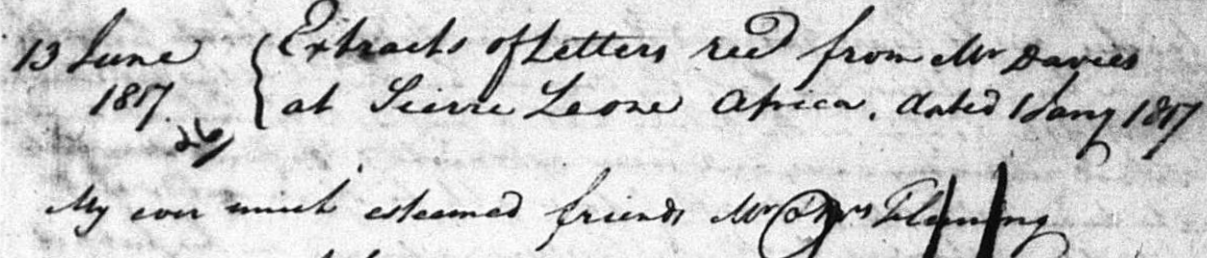 13 June { Extracts of Letters recd from Mr Davies
1817. at Sierre Leone Africa, dated 1 Jany 1817
My ever much esteemed friends Mr & Mrs Fleming